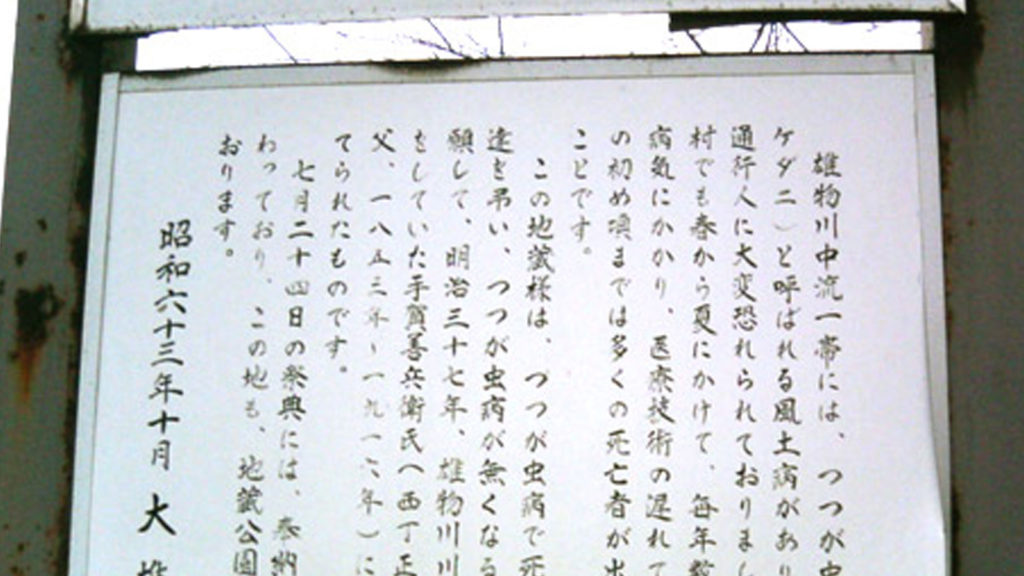 雄物川中流一帯には、つつが虫
ケダニ）と呼ばれる風土病があり
通行人に大変恐れられておりまし
村でも春から夏にかけて、毎年数
病気にかかり、医療技術の遅れて
の初め頃までは多くの死亡者が出
ことです。
この地蔵様は、つつが虫病で死
逹を弔い、つつが虫病が無くなる
願して、明治三十七年、雄物川川
をしていた手賀善兵衛氏へ西丁正
父、一八五三年〜一九一六年）に
てられたものです。
七月二十四日の祭典には、奉納
わっており、この地も、地蔵公園
おります。
昭和六十三年十月 大雄